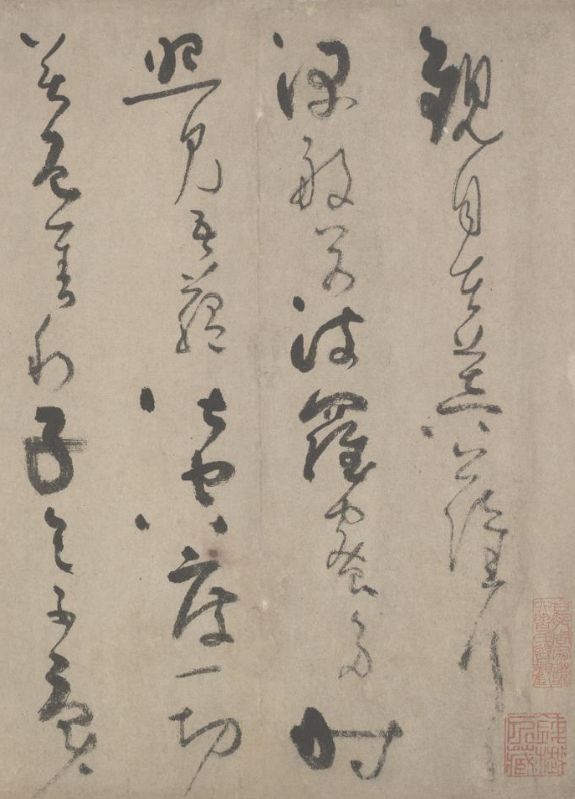 觀自在菩薩行
深般若波羅蜜多時
照見五蘊皆空度一切
苦厄舍利子色不異